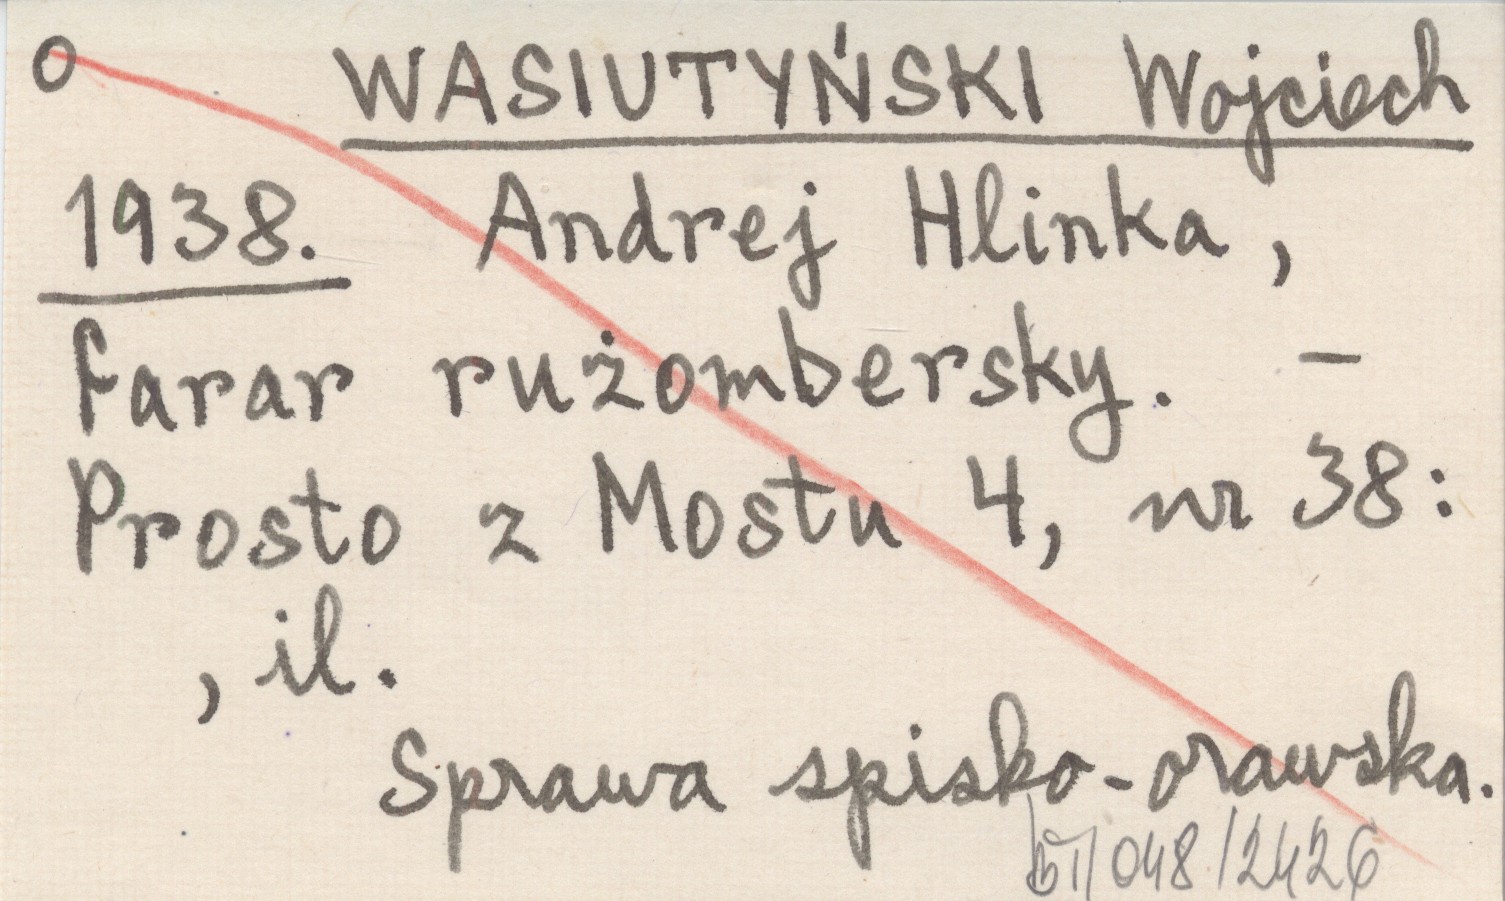 O WASIUTYŃSKI Wojciech
1938. Andrej Hlinka,
farar rużombersky. —
Prosto z Mostu 4, nr 38:
, il.
Sprawa spisko-orawska.
048/2426